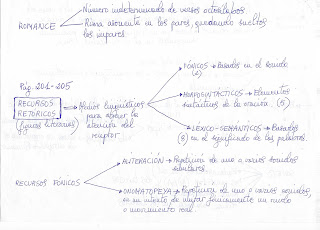 Número indeterminado de versos octosílabos.
ROMANCE
Rima asonante en los pares, quedando sueltos
los impares.
Pág. 201-205
FÓNICOS → Basados en el sonido
(2)
RECURSOS
RETÓRICOS
(figuras literarias)
Medios lingüísticos
para atraer la
atención del
receptor
MORFOSINTÁCTICOS → Elementos
sintácticos de la oración. (5)
LÉXICO-SEMÁNTICOS → Basados
(8) en el significado de las palabras.
ALITERACIÓN → Repetición de uno o varios sonidos
RECURSOS FÓNICOS
ONOMATOPEYA → Repetición de uno o varios sonidos,
en un intento de imitar fónicamente un ruido
o movimiento real.